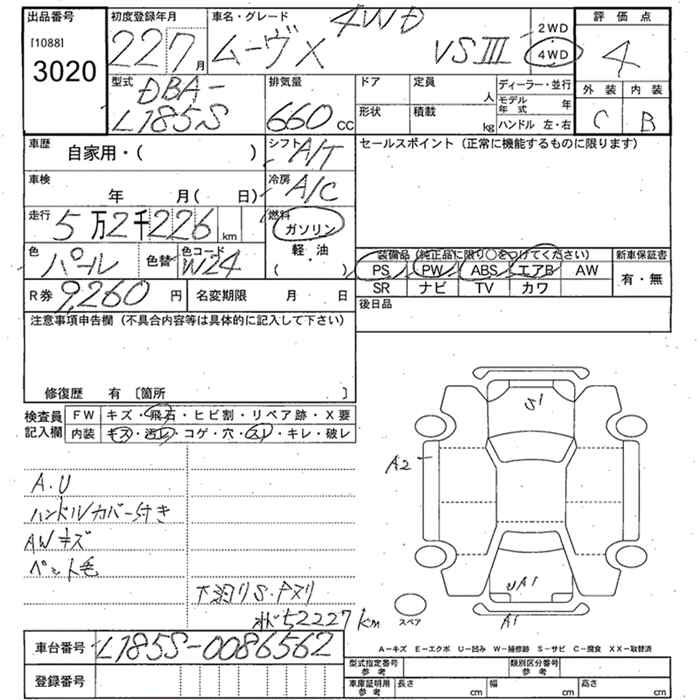 出品番号
[1088]
3020
初度登録年月
22 7月
車名・グレード
ムーヴX 4WD VSIII
2WD
4WD
評価点
4
外装 内装
C B
型式
DBA-
L185S
排気量
660 cc
ドア 定員 人
形状 積載 kg
ディーラー・並行
モデル年式 年
ハンドル 左・右
車歴
自家用・( )
シフト
A/T
セールスポイント (正常に機能するものに限ります)
車検
年 月( 日)
冷房
A/C
走行
5万2千226 km
燃料
ガソリン
軽・油
( )
色
パール
色替
色コード
W24
装備品 (純正品に限り○をつけてください)
新車保証書
PS PW ABS エアB AW
有・無
SR ナビ TV カワ
R券 9,260 円
名変期限 月 日
後日品
注意事項申告欄 (不具合内容等は具体的に記入して下さい)
修復歴 有 〔箇所 〕
検査員
記入欄
FW キズ・飛石・ヒビ割・リペア跡・X要
内装 キズ・汚レ・コゲ・穴・スレ・キレ・破レ
A.U
ハンドルカバー付き
AWキズ
ペット毛
下廻りS・アヌリ
52227km
S1
A2
A1
A1
スペア
A−キズ E−エクボ U−凹み W−補修跡 S−サビ C−腐食 XX−取替済
車台番号 L185S-0086562
登録番号
型式指定番号
参考
類別区分番号
参考
車庫証明用
参考
長さ cm 幅 cm 高さ cm